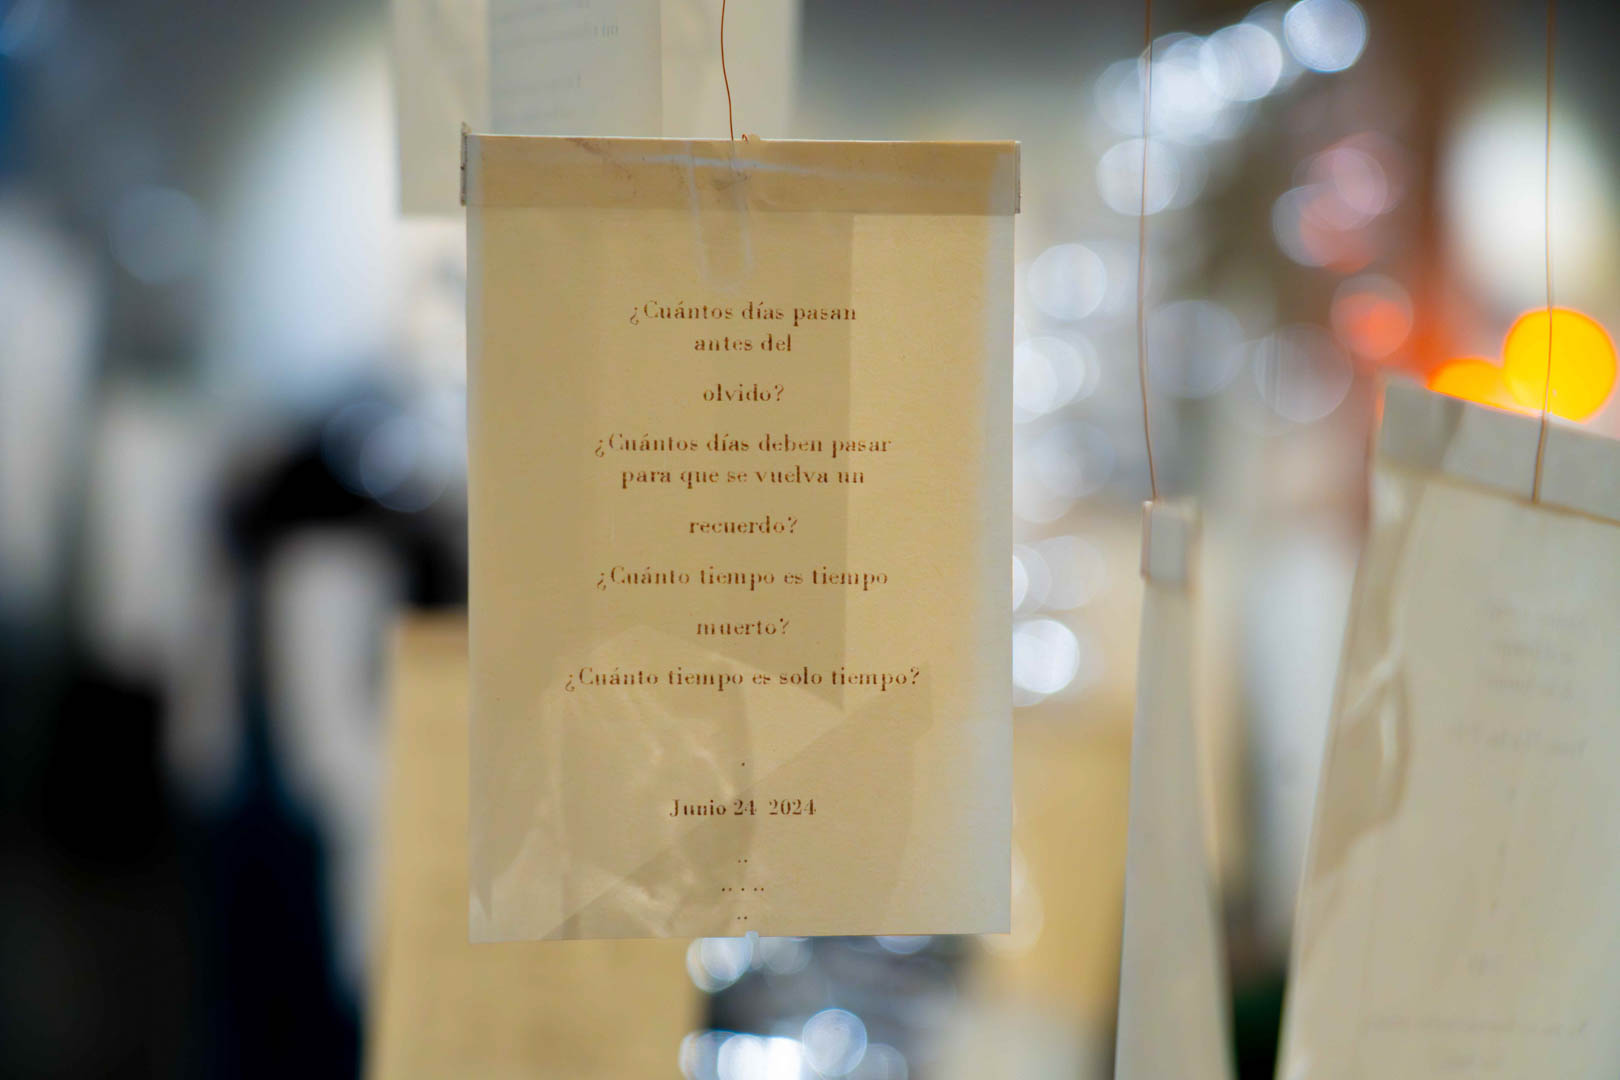 ¿Cuántos días pasan
antes del
olvido?
¿Cuántos días deben pasar
para que se vuelva un
recuerdo?
¿Cuánto tiempo es tiempo
muerto?
¿Cuánto tiempo es solo tiempo?
.
Junio 24 2024
..
.. . ..
..